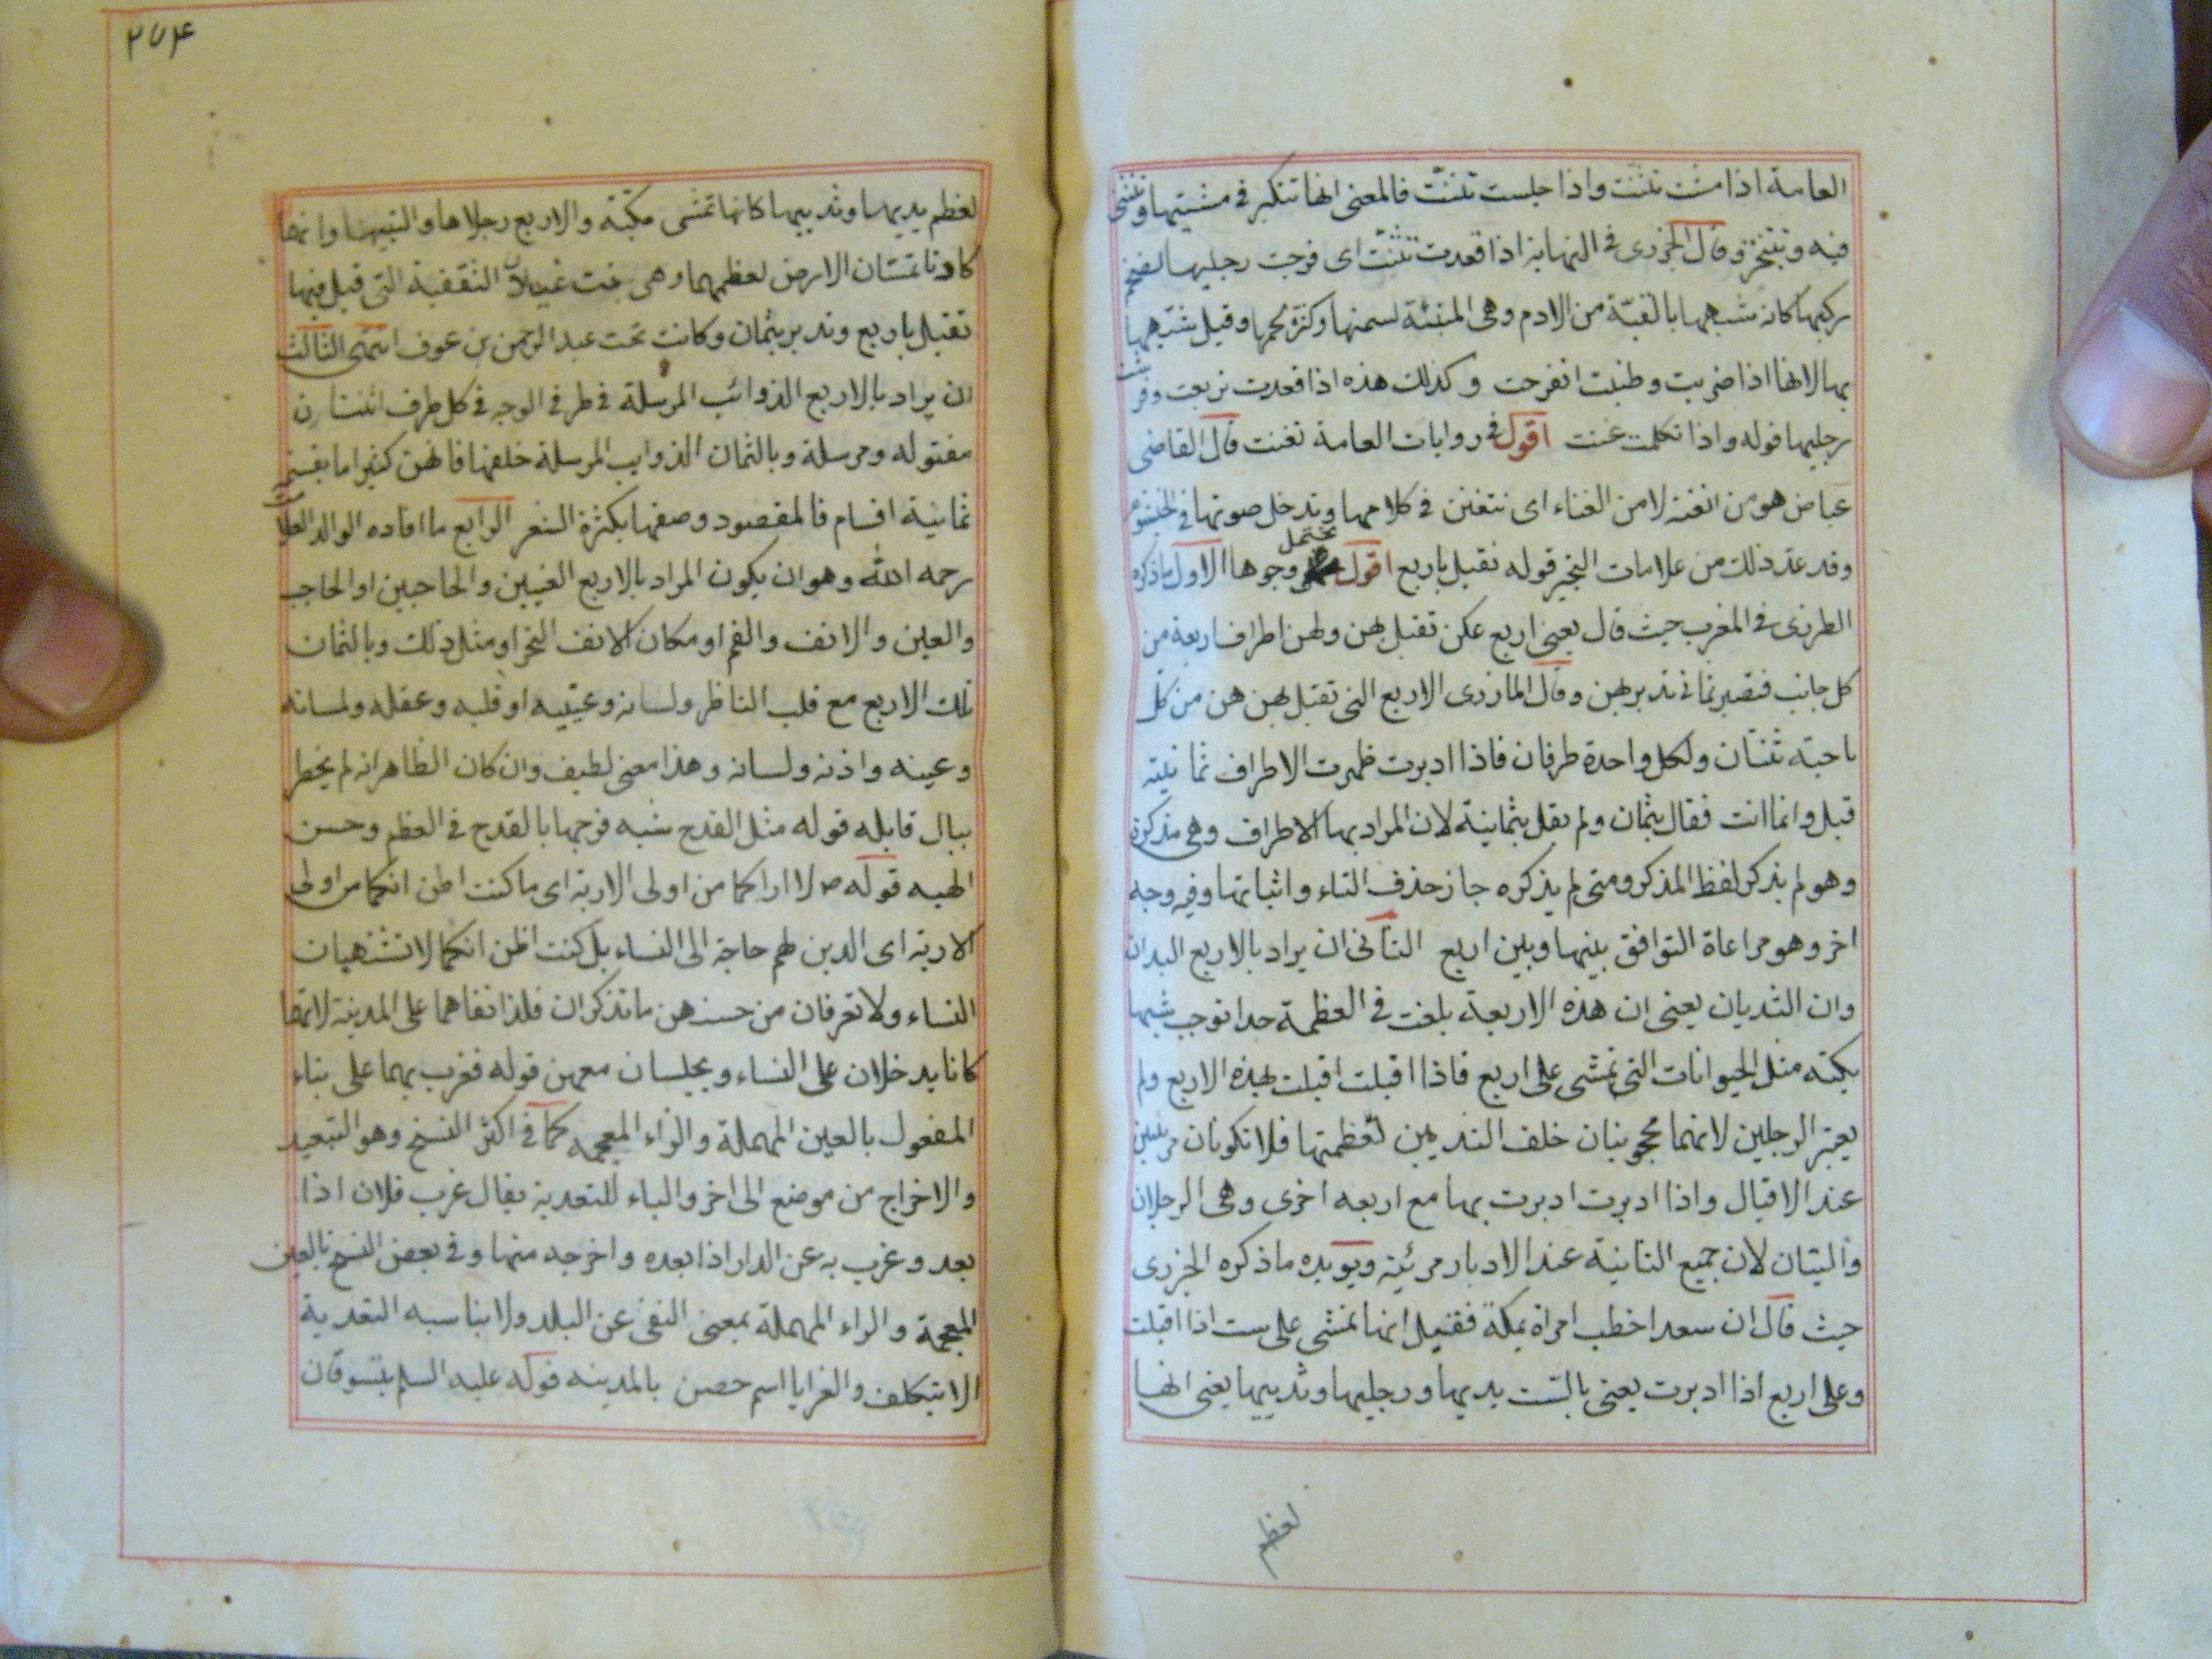 العامة اذا مشت تثنت واذا جلست تثنت فالمعنى انها تتكبر فى مشيتها وتتثنى
فيه وتتبختر وقال الجزرى فى النهاية اذا قعدت تثنت اى فرجت رجليها لضخم
ركبها كانه شبهها بالقبة من الادم وهى المبنية لسمنها وكثرة لحمها وقيل شبهها
بها لانها اذا ضربت وطنبت انفرجت وكذلك هذه اذا قعدت تربعت وفرشت
رجليها قوله واذا تكلمت غنت اقول فى روايات العامة تغنت قال القاضى
عياض هو من الغنه لا من الغناء اى تتغنن فى كلامها وتدخل صوتها فى الخيشوم
وقد عد ذلك من علامات التجبر قوله تقبل باربع اقول يحتمل وجوها الاول ما ذكره
المطرزى فى المغرب حيث قال يعنى اربع عكن تقبل بهن ولهن اطراف اربعة من
كل جانب فتصير ثمانى تدبر بهن وقال المازرى الاربع التى تقبل بهن هن من كل
ناحية ثنتان ولكل واحدة طرفان فاذا ادبرت ظهرت الاطراف ثمانية
قيل وانما انت فقال بثمان ولم يقل بثمانية لان المراد بها الاطراف وهى مذكرة
وهو لم يذكر لفظ المذكر ومتى لم يذكره جاز حذف التاء واثباتها وفيه وجه
اخر وهو مراعاة التوافق بينها وبين اربع الثانى ان يراد بالاربع اليدان
وان الثديان يعنى ان هذه الاربعة بلغت فى العظمة حدا توجب مشيها
مكبة مثل الحيوانات التى تمشى على اربع فاذا اقبلت اقبلت بهذه الاربع ولم
يعتبر الرجلين لانهما محجوبتان خلف الثديين لعظمتها فلا تكونان مرئيتين
عند الاقبال واذا ادبرت ادبرت بها مع اربعه اخرى وهى الرجلان
واليتان لان جميع الثمانية عند الادبار مرئية ويؤيده ما ذكره الجزرى
حيث قال ان سعدا خطب امراة بمكة فقيل انها تمشى على ست اذا اقبلت
وعلى اربع اذا ادبرت يعنى بالست يديها ورجليها وثدييها يعنى انها
لعظم
٢٧۴
لعظم يديها وثدييها كانها تمشى مكبة والاربع رجلاها والييها وانهما
كادتا تمسان الارض لعظمهما وهى بنت غيلان الثقفية التى قيل فيها
تقبل باربع وتدبر بثمان وكانت تحت عبد الرحمن بن عوف انتهى الثالث
ان يراد بالاربع الذوائب المرسلة فى طرفى الوجه فى كل طرف اثنتان
مفتوله ومرسلة وبالثمان الذوايب المرسلة خلفها فانهن كثيرا ما يقسمنه
ثمانية اقسام فالمقصود وصفها بكثرة الشعر الرابع ما افاده الوالد العلامة
رحمه الله وهو ان يكون المراد بالاربع العينين والحاجبين او الحاجب
والعين والانف والفم او مكان الانف النحر او مثل ذلك وبالثمان
تلك الاربع مع قلب الناظر ولسانه وعينيه او قلبه وعقله ولسانه
وعينه واذنه ولسانه وهذا معنى لطيف وان كان الظاهر انه لم يخطر
ببال قايله قوله مثل القدح شبه فرجها بالقدح فى العظم وحسن
الهيه قوله ص لا اراكما من اولى الاربة اى ما كنت اظن انكما من اولى
الاربة اى الذين لهم حاجة الى النساء بل كنت اظن انكما لا تشتهيان
النساء ولا تعرفان من حسنهن ما تذكران فلذا نفاهما على المدينة لانهما
كانا يدخلان على النساء ويجلسان معهن قوله فعزب بهما على بناء
المفعول بالعين المهملة والزاء المعجمه كما فى اكثر النسخ وهو التبعيد
والاخراج من موضع الى اخر والباء للتعدية يقال عزب فلان اذا
بعد وعزب به عن الدار اذا بعده واخرجه منها وفى بعض النسخ بالغين
المعجمة والراء المهملة بمعنى النفى عن البلد ولا يناسبه التعدية
الا بتكلف والعرايا اسم حصن بالمدينه قوله عليه السلم يتسوقان